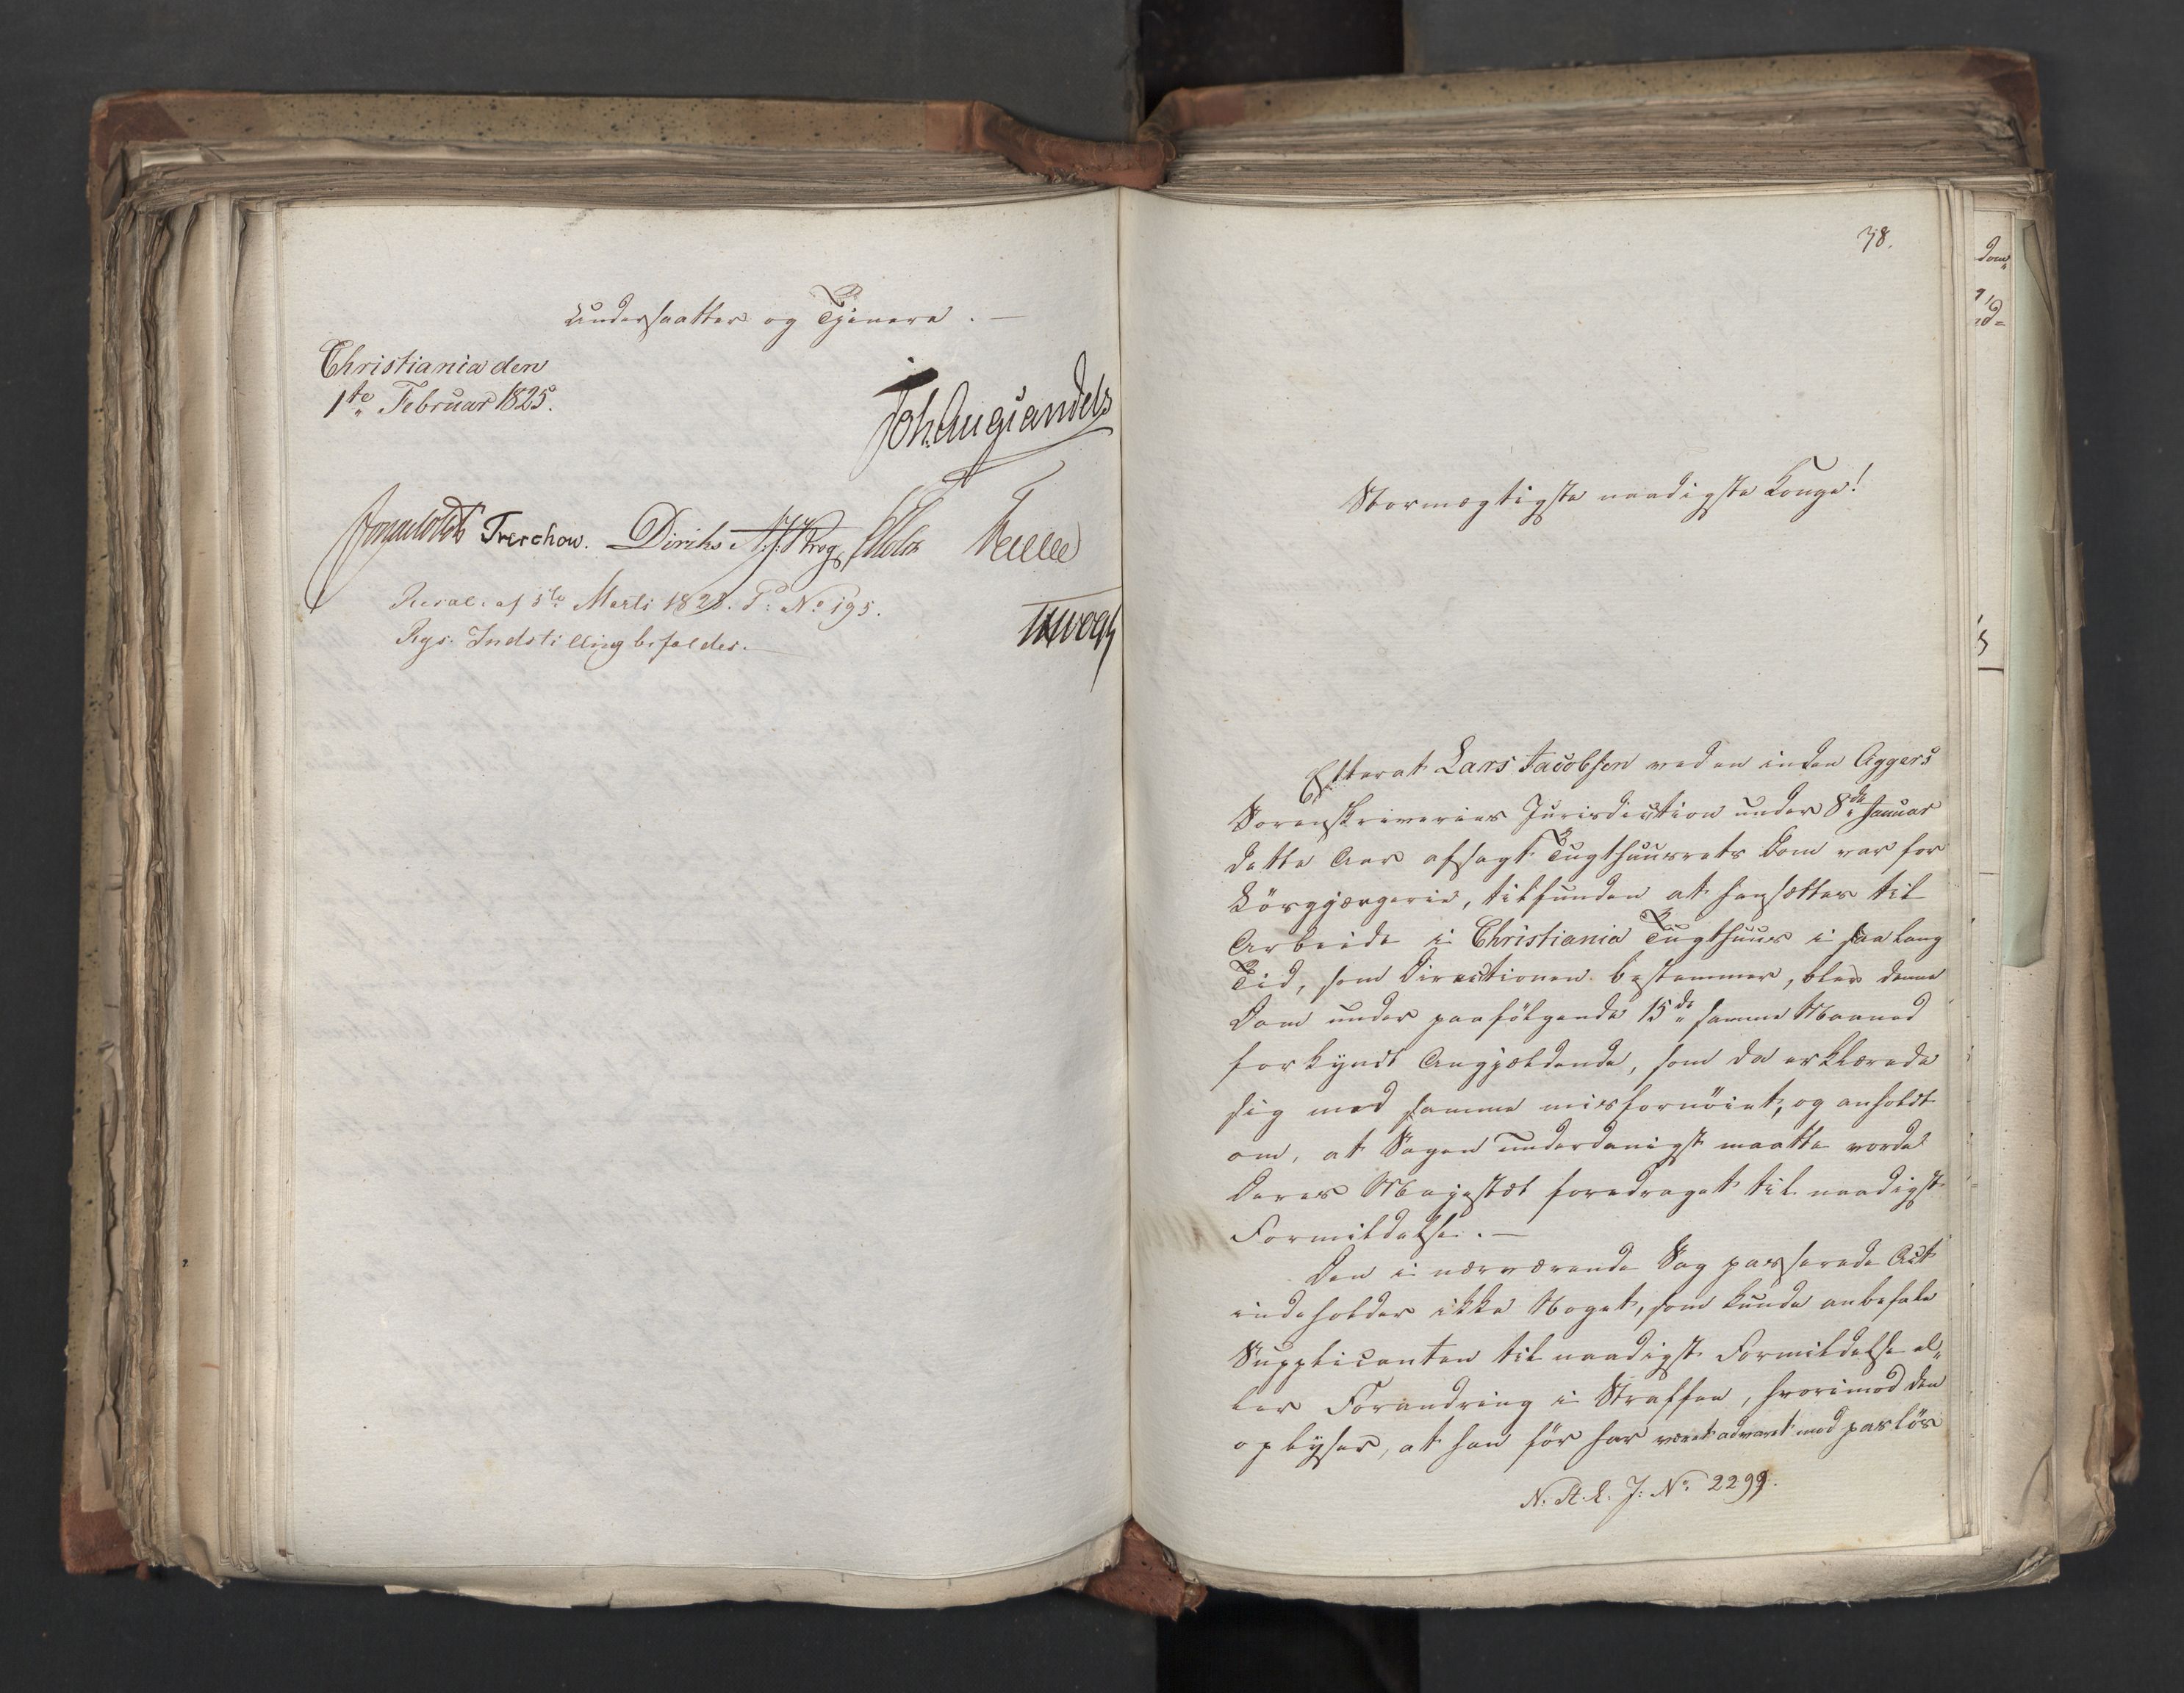 undersaatter og Tjenere. —
Christiania den
1te Februar 1825.
Joh. Aug. Sandels
Sommerhielm Treschow. Diriks N: J: Krog Collett Fasting
Resol. af 5te Marti 1825. P: No 195.
Rgs. Indstilling bifaldes. —
JHVogt
38.
Stormægtigste naadigste Konge!
Efterat Lars Jacobsen ved en inden Aggers
Sorenskriveries Jurisdiction under 8de Januar
dette Aar afsagt Tugthuusrets Dom var for
Løsgjængerie, tilfunden at hensættes til
Arbeide i Christiania Tugthuus i saa lang
Tid, som Directionen bestemmer, blev denne
Dom under paafølgende 15de samme Maaned
forkyndt Angjældende, som da erklærede
sig med samme misfornöiet, og anholdt
om, at Sagen underdanigst maatte vorde
Deres Majestæt foredraget til naadigst
Formildelse. —
Den i nærværende Sag passerede Act
indeholder ikke Noget, som kunde anbefale
Supplicanten til naadigst Formildelse el„
ler Forandring i Straffen, hvorimod den
oplyser, at han för har været advaret mod paslös
N. St. R. J: No 2299.
dom„
nd=